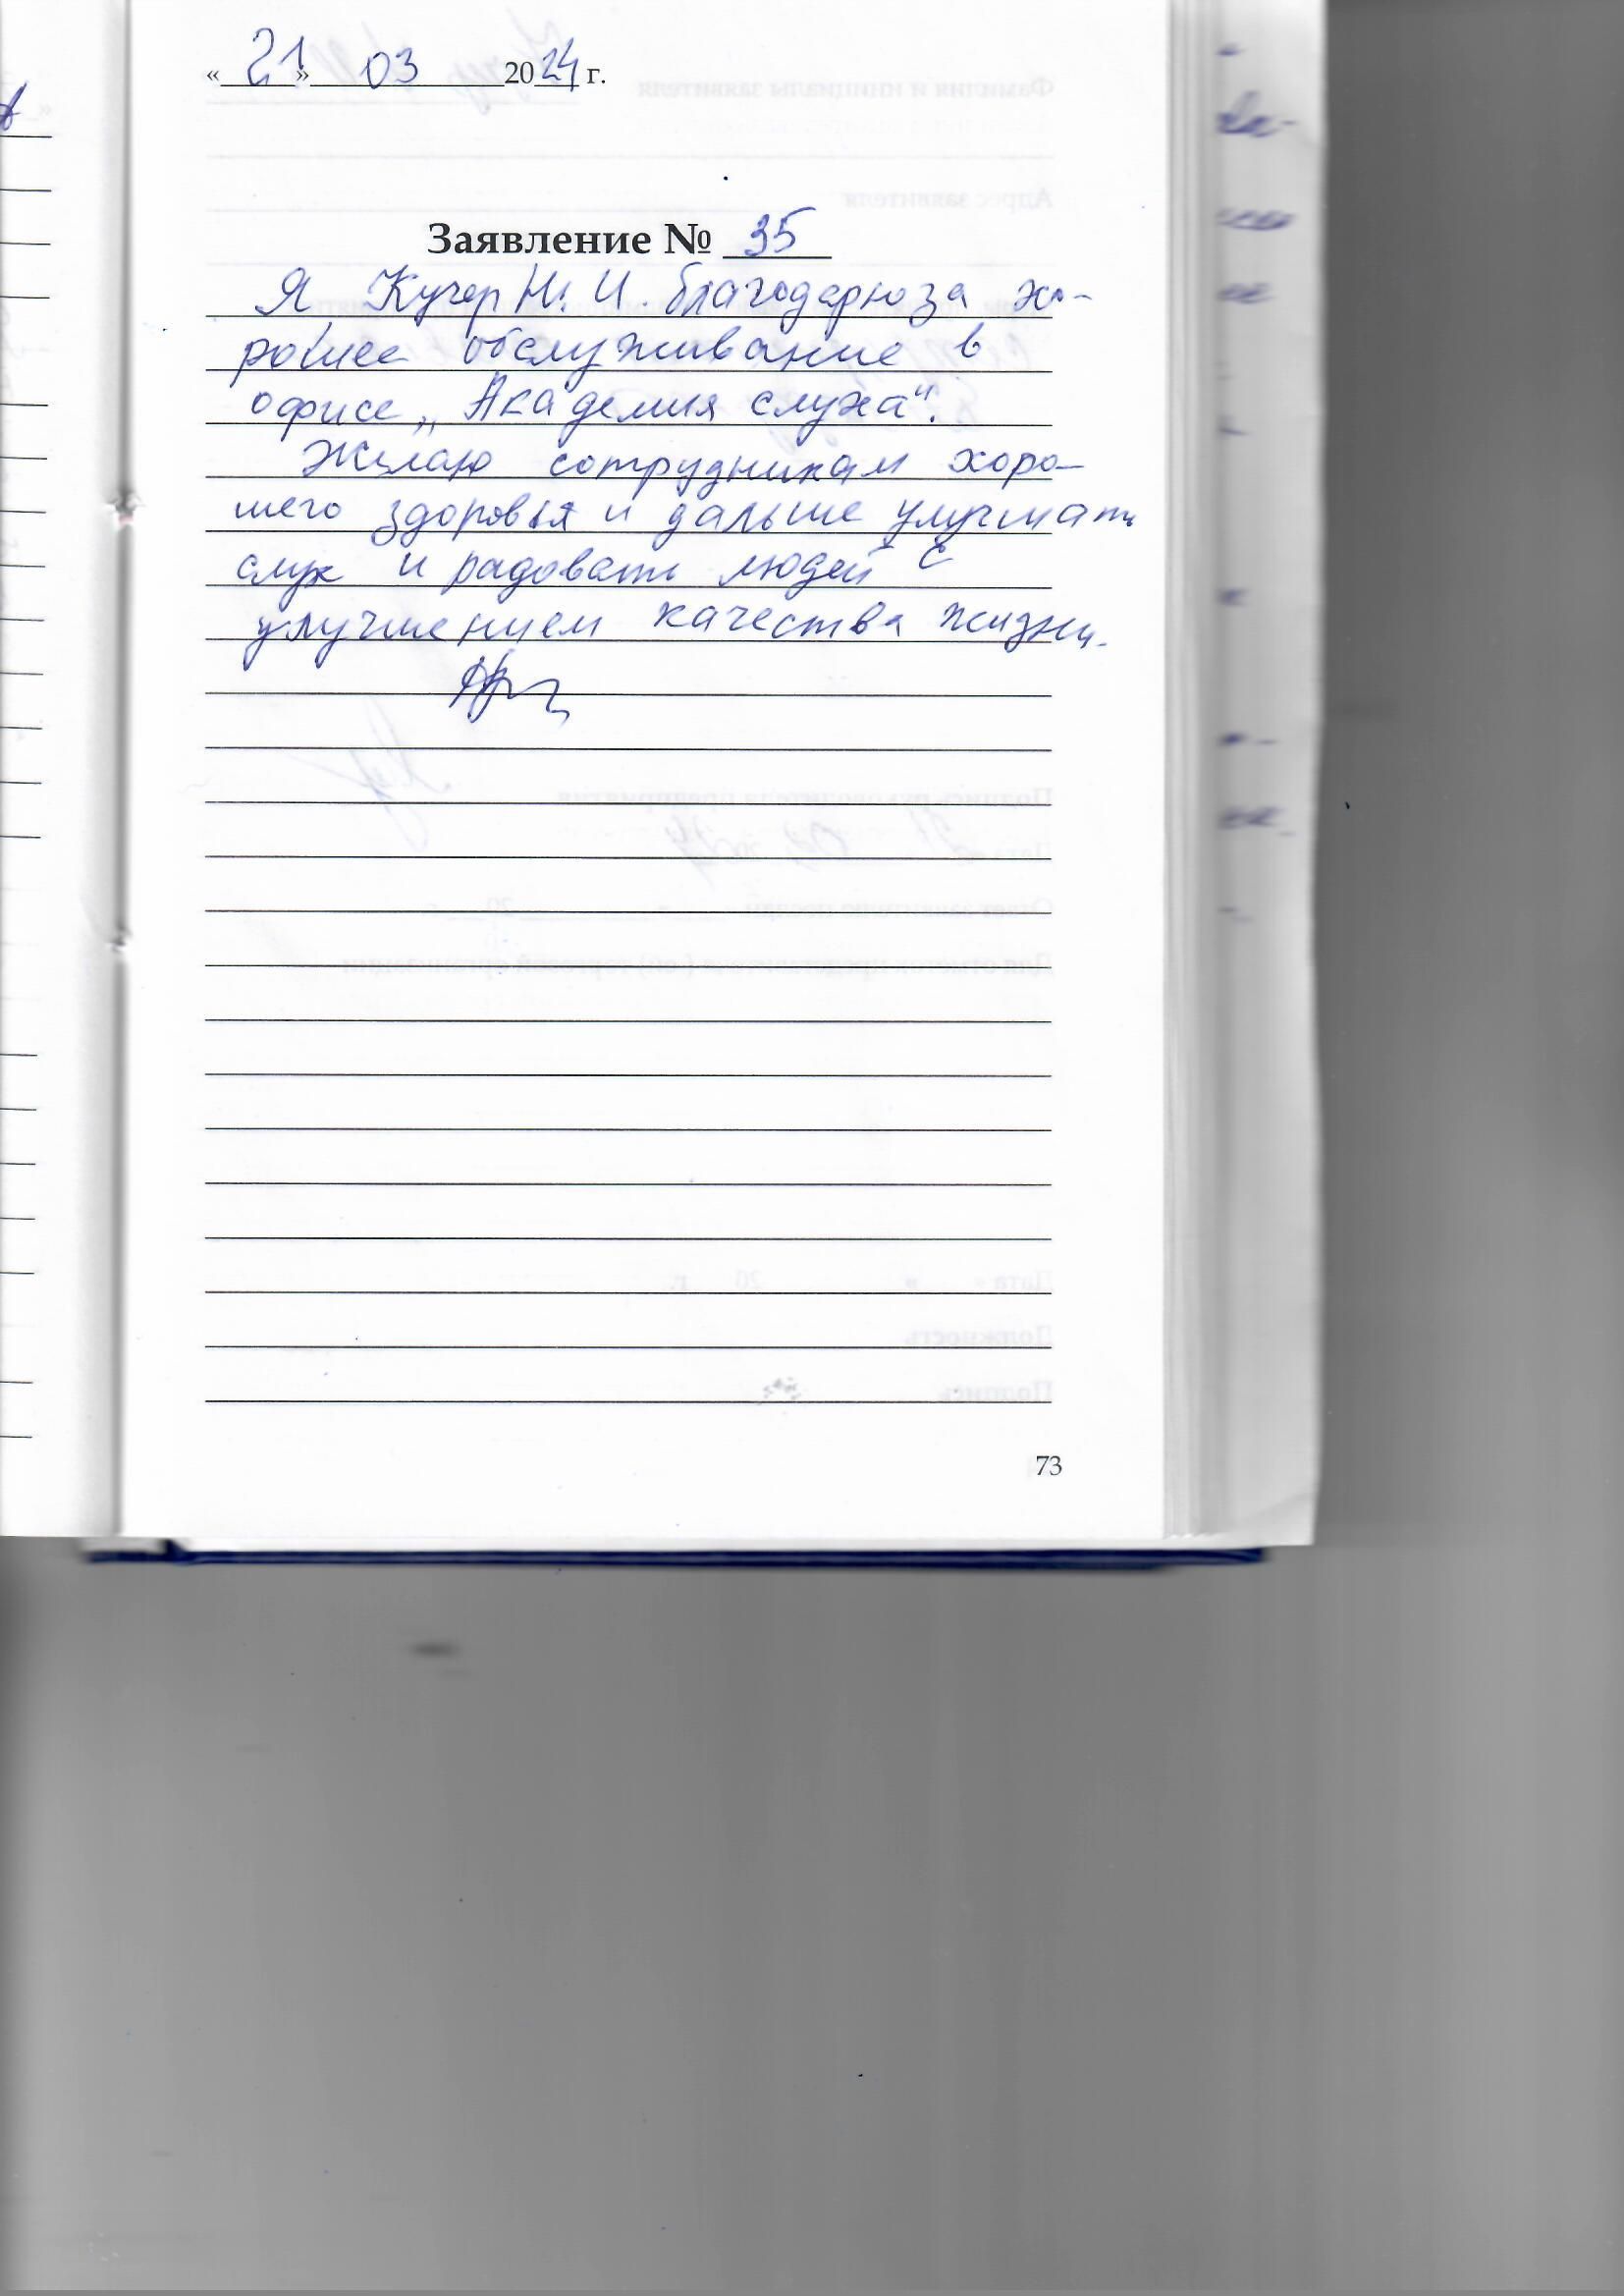 « 21 » 03 2024 г.
Заявление № 35
Я Кучер Н. И. благодарю за хо-
рошее обслуживание в
офисе „Академия слуха“.
Желаю сотрудникам хоро-
шего здоровья и дальше улучшать
слух и радовать людей с
улучшением качества жизни.
73